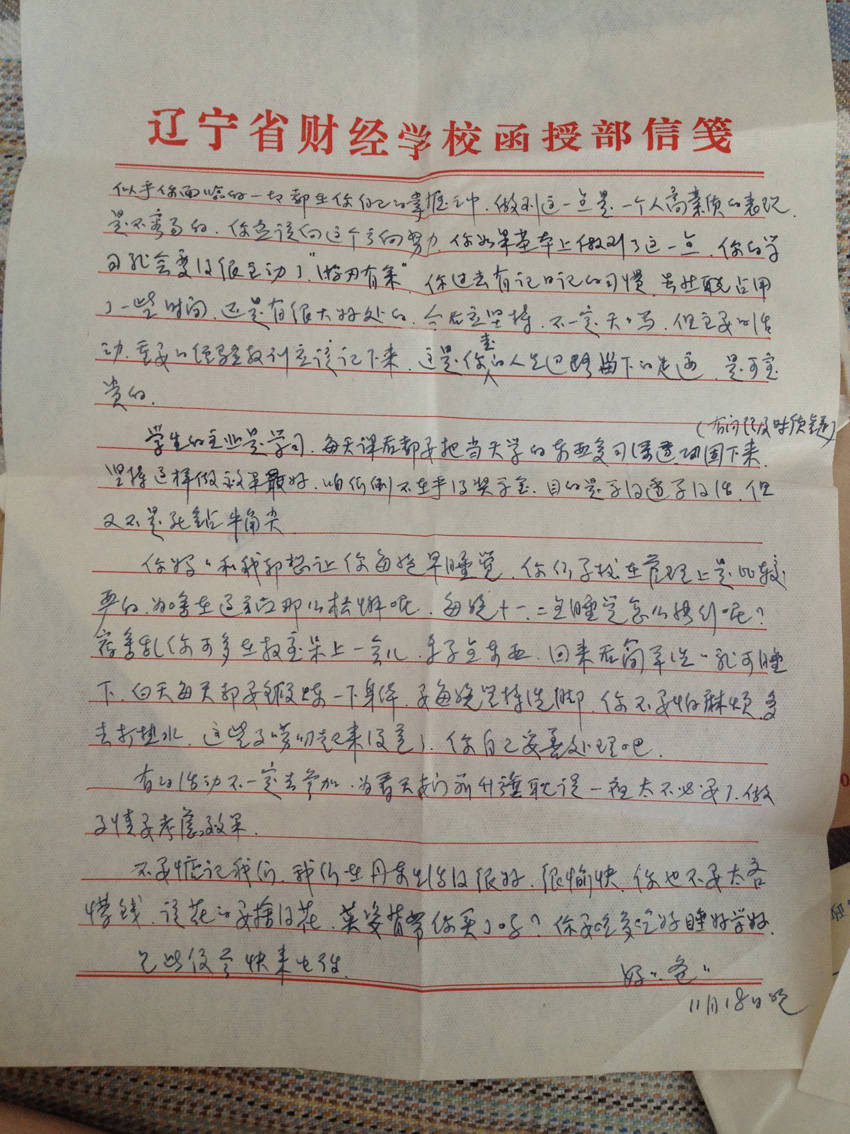 辽宁省财经学校函授部信笺
似乎你面临的一切都在你自己的掌握之中。做到这一点是一个人高素质的表现
是不容易的。你应该向这个方向努力。你如果基本上做到了这一点，你的学
习就会变得很主动了，“游刃有余”。你过去有记日记的习惯，虽然耽占用
了一些时间，还是有很大好处的，今后应坚持，不一定天天写，但主要的活
动、重要的经验教训应该记下来，这是你走的人生道路留下的足迹，是可宝
贵的。
（有问题及时质疑）
学生的主业是学习，每天课后都要把当天学的东西复习得透巩固下来，
坚持这样做效果最好，咱们倒不在乎得奖学金，目的是学得透学得活，但
又不是死钻牛角尖
你妈妈和我都想让你每晚早睡觉，你们学校在管理上是比较
严的，为啥在这方面那么松懈呢，每晚十一、二点睡觉怎么能行呢？
宿舍乱你可多在教室呆上一会儿，学点东西，回来后简单洗洗就可睡
下，白天每天都要锻炼一下身体，要每晚坚持洗脚，你不要怕麻烦，多
去打热水，这些事唠叨起来没完了，你自己妥善处理吧。
有的活动不一定去参加，为看天安门前升旗耽误一夜太不必要了，做
事情要考虑效果。
不要惦记我们，我们在丹东生活得很好，很愉快，你也不要太吝
惜钱，该花的要捨得花，英姿背带你买了吗？你要吃多吃好睡好学好。
已此没完快来电话。
好“爸”
11月18日晚